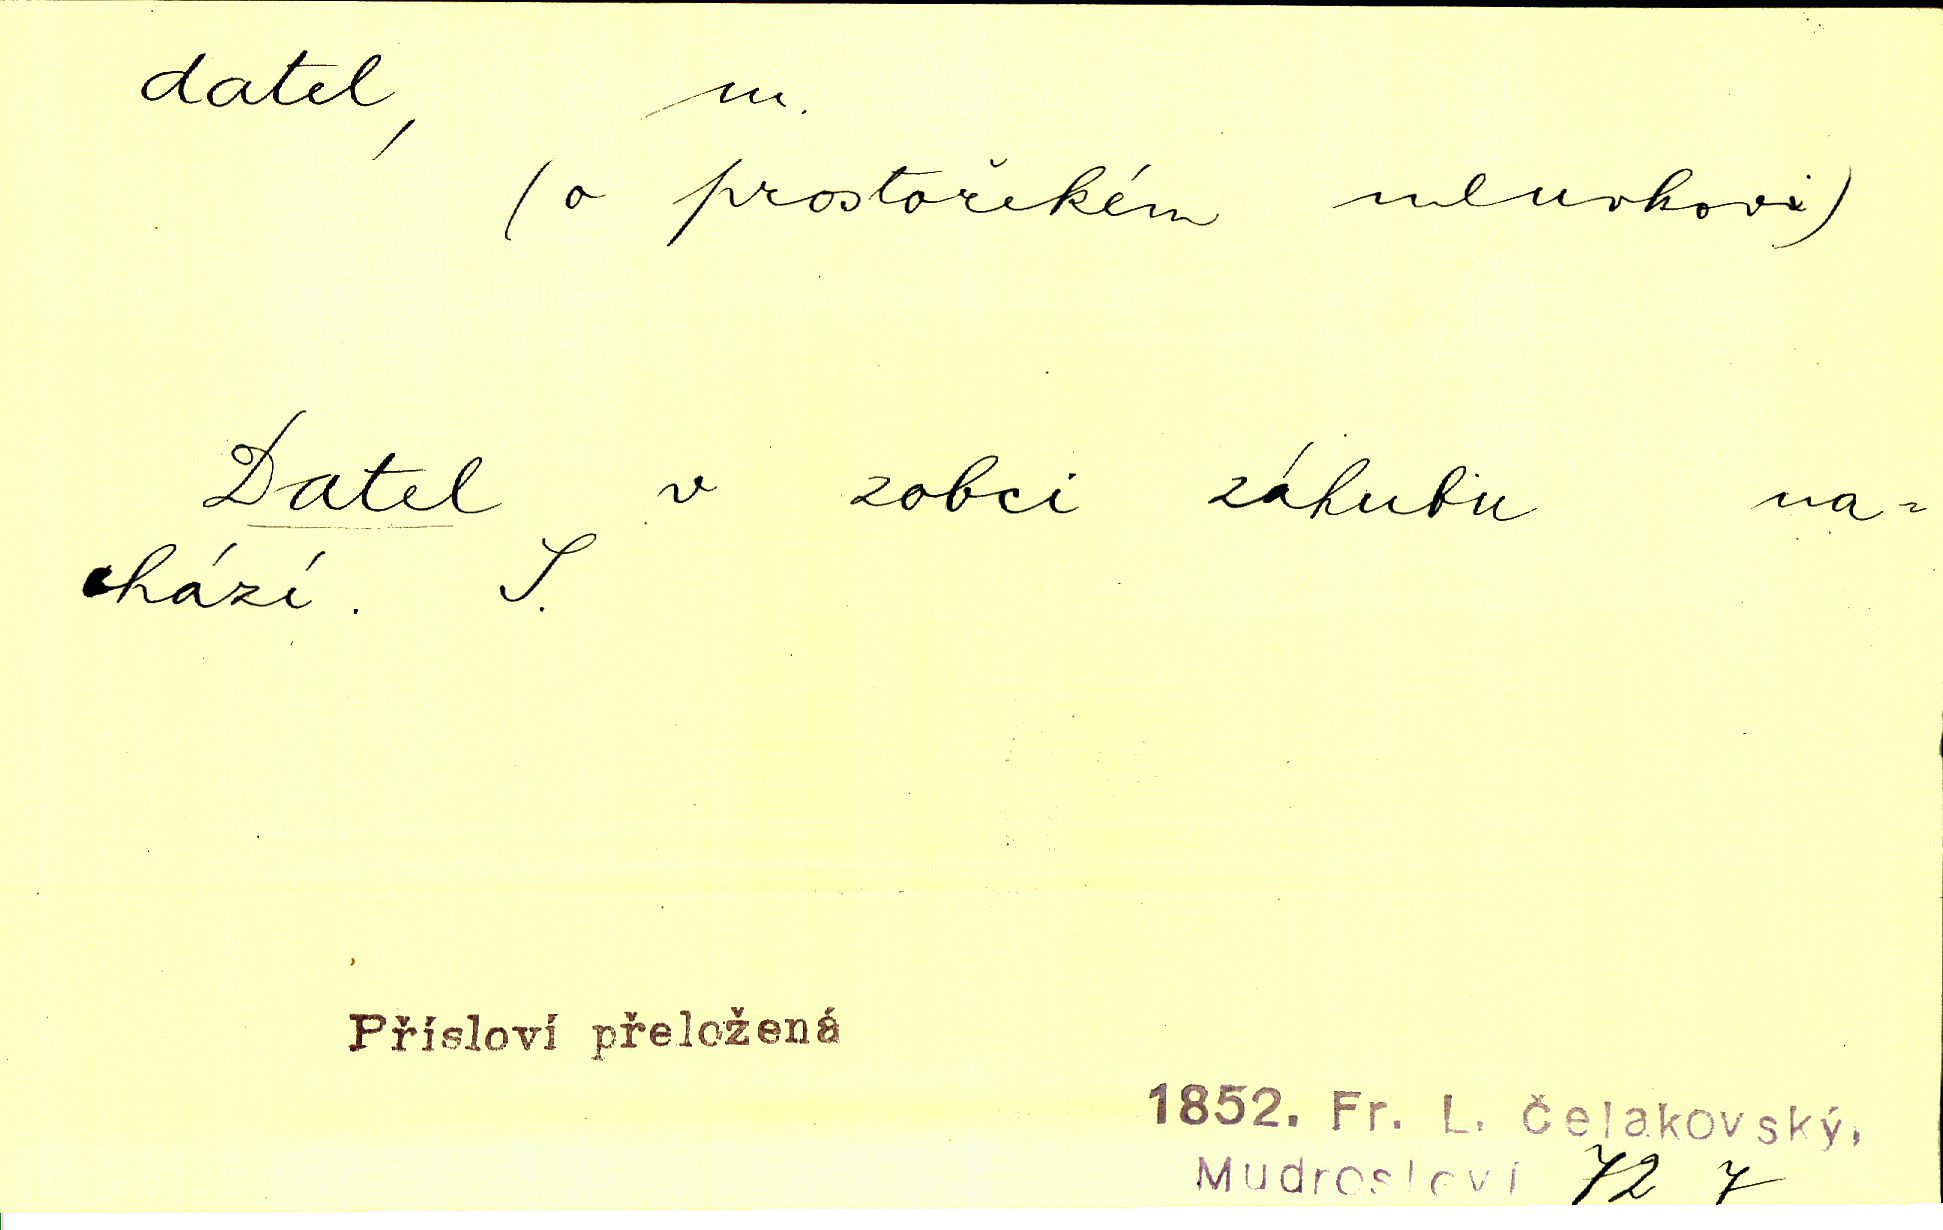 datel, m.
(o prostořekém mluvkovi)
Datel v zobci záhubu na-
chází. S.
Přísloví přeložená
1852. Fr. L. Čelakovský,
Mudrosloví 72 7